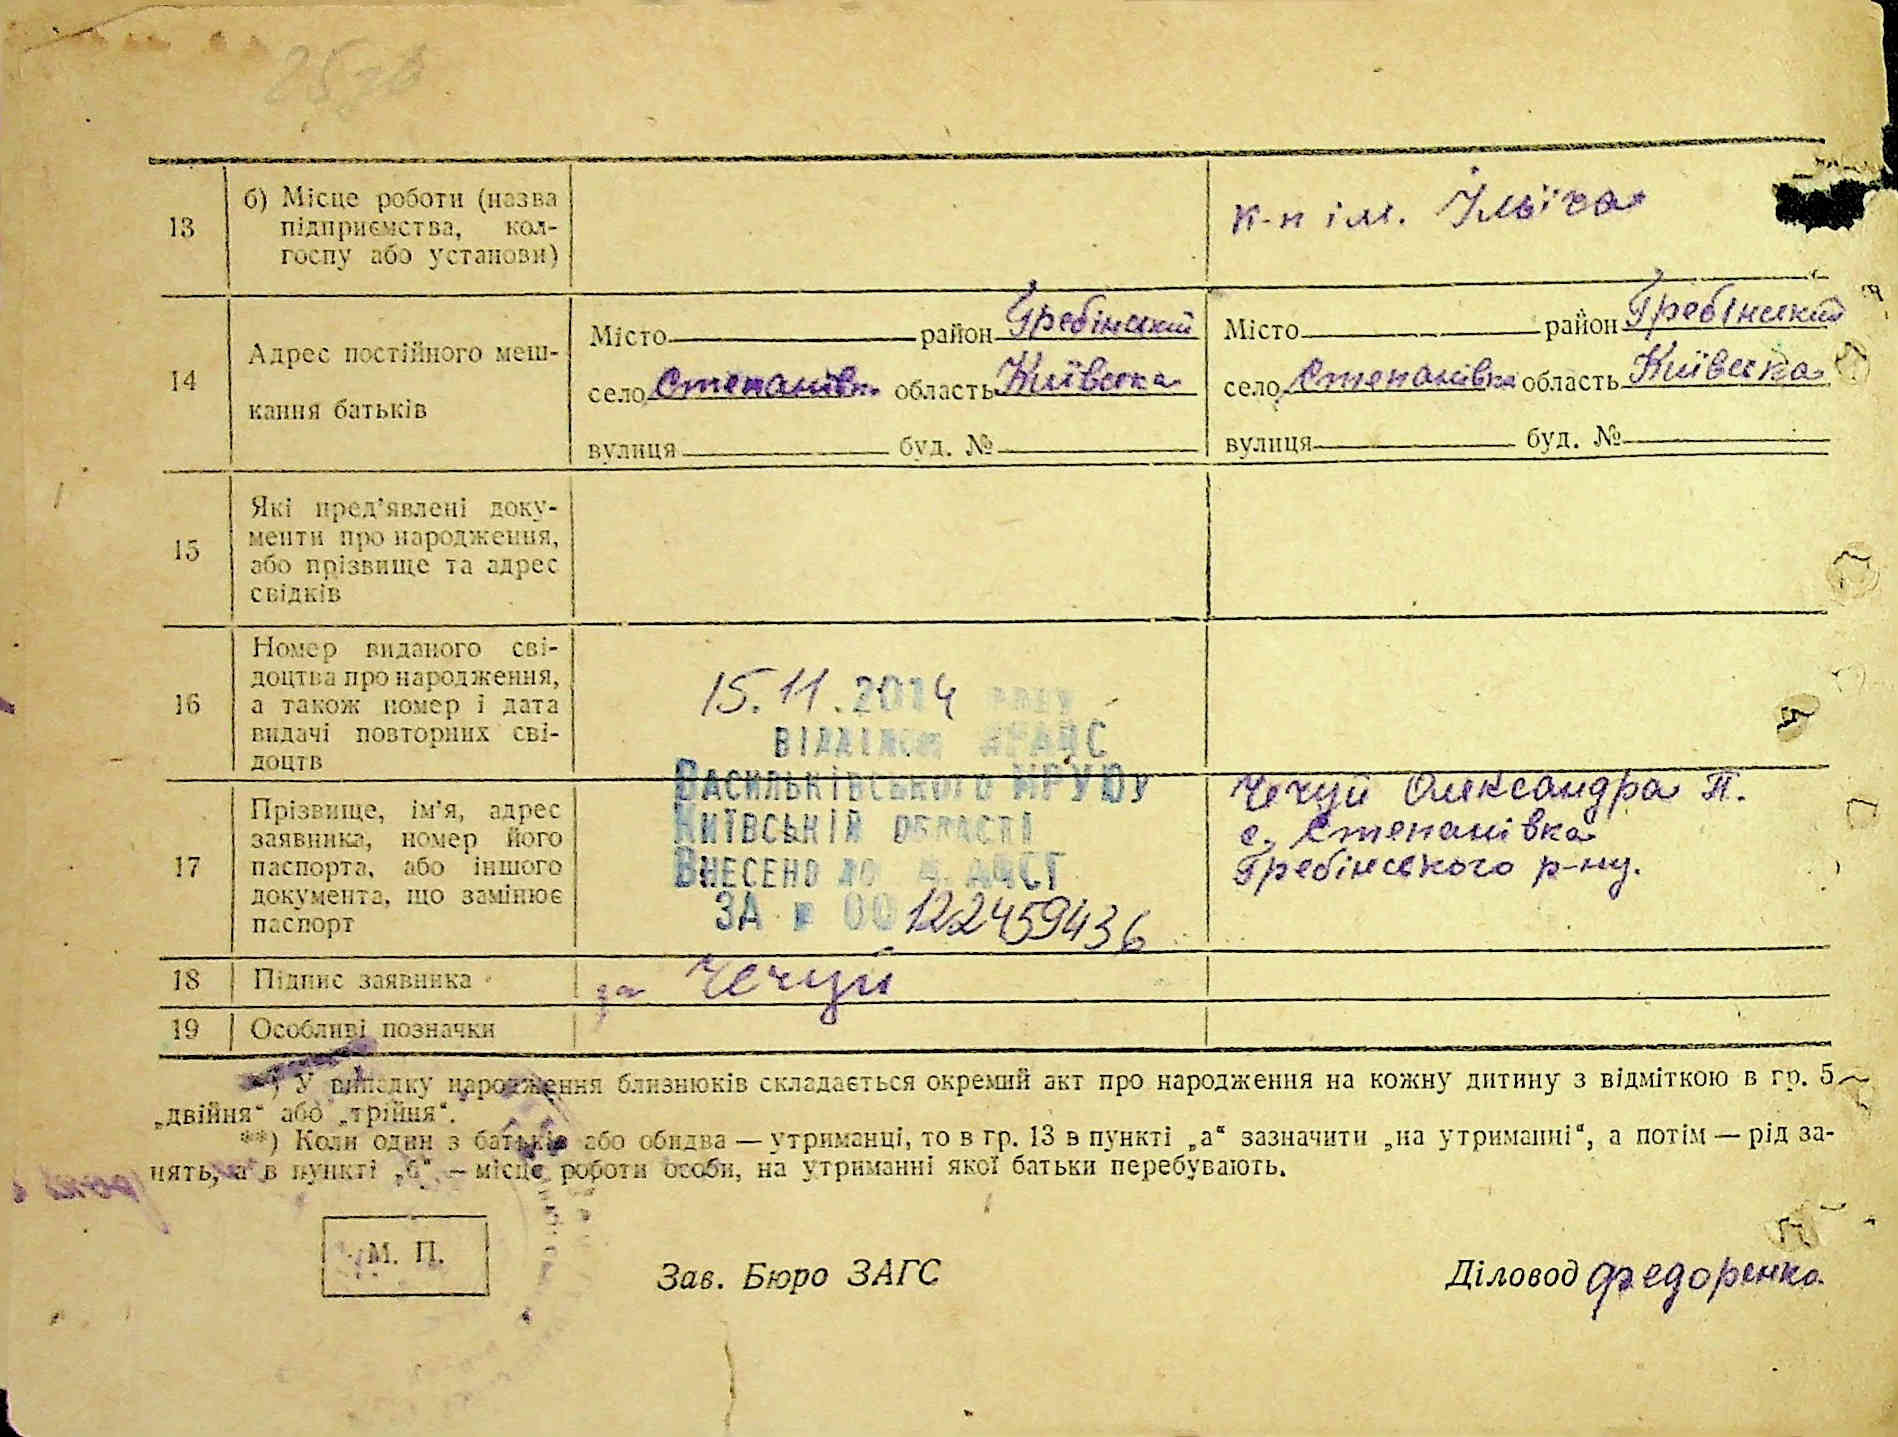 13
б) Місце роботи (назва
підприємства, кол-
госпу або установи)
к-п ім. Ілліча
14
Адрес постійного меш-
кання батьків
Місто район Гребінський
село Степанівка область Київська
вулиця буд. №
Місто район Гребінський
село Степанівка область Київська
вулиця буд. №
15
Які пред'явлені доку-
менти про народження,
або прізвище та адрес
свідків
16
Номер виданого сві-
доцтва про народження,
а також номер і дата
видачі повторних сві-
доцтв
15.11.2014 року
ВІДДІЛОМ ДРАЦС
ВАСИЛЬКІВСЬКОГО МРУЮУ
КИЇВСЬКІЙ ОБЛАСТІ
ВНЕСЕНО ДО
ЗА № 00122459436
17
Прізвище, ім'я, адрес
заявника, номер його
паспорта, або іншого
документа, що замінює
паспорт
Чечуй Олександра П.
с. Степанівка
Гребінського р-ну.
18
Підпис заявника
за Чечуй
19
Особливі позначки
*) У випадку народження близнюків складається окремий акт про народження на кожну дитину з відміткою в гр. 5
„двійня“ або „трійня“.
**) Коли один з батьків або обидва — утриманці, то в гр. 13 в пункті „а“ зазначити „на утриманні“, а потім — рід за-
нять, а в пункті „б“ — місце роботи особи, на утриманні якої батьки перебувають.
М. П.
Зав. Бюро ЗАГС
Діловод Федоренко